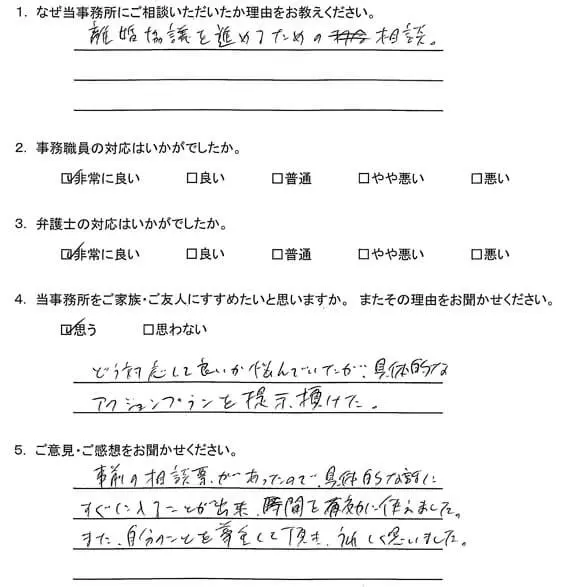 1. なぜ当事務所にご相談いただいたか理由をお教えください。
離婚協議を進めるための相談。
2. 事務職員の対応はいかがでしたか。
☑非常に良い □良い □普通 □やや悪い □悪い
3. 弁護士の対応はいかがでしたか。
☑非常に良い □良い □普通 □やや悪い □悪い
4. 当事務所をご家族・ご友人にすすめたいと思いますか。 またその理由をお聞かせください。
☑思う □思わない
どう対応して良いか悩んでいたが、具体的な
アクションプランを提示頂けた。
5. ご意見・ご感想をお聞かせください。
事前の相談票があったので、具体的な話に
すぐに入ることが出来、時間を有効に使えました。
また、自分のことを尊重して頂き、うれしく思いました。